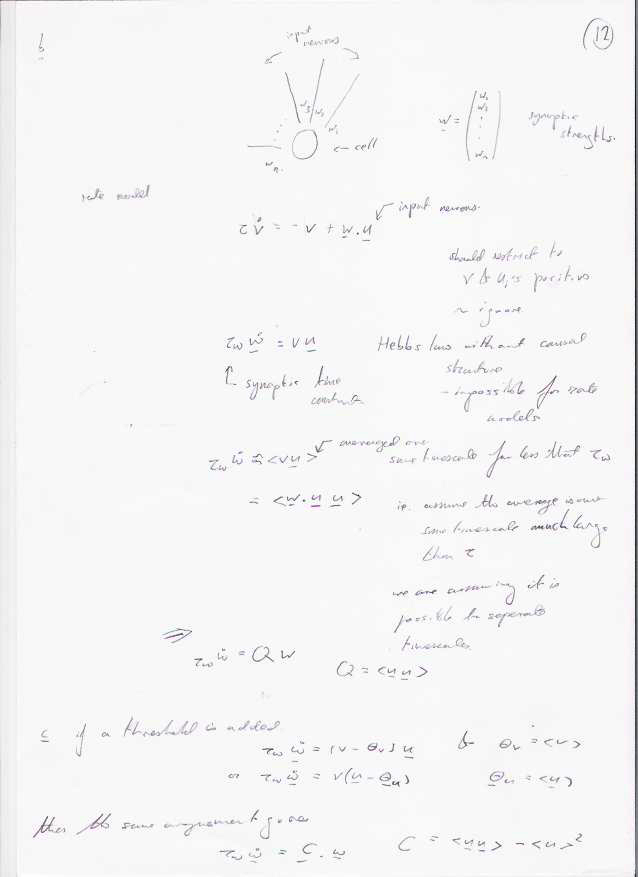 b
12
input
neurons
w₃ w₂
w₁
wₙ
← cell
w = (w₁ w₂ ⋮ wₙ)
synaptic
strengths.
rate model
τ v̇ = - v + w.u
input neurons.
should restrict to
v & uᵢ's positive
~ ignore
τw ẇ = v u
Hebbs law without causal
structure
- impossible for rate
models
↑ synaptic time
constant
τw ẇ = <v u>
averaged over
some timescale far less that τw
= <w.u u>
ie. assume the average is over
some timescale much large
than τ
we are assuming it is
possible to seperate
timescales.
⇒ τw ẇ = Q w
Q = <u u>
c if a threshold is added.
τw ẇ = (v - θv) u
& θv = <v>
or τw ẇ = v(u - θu)
θu = <u>
then the same arguement gives
τw ẇ = C . w
C = <u u> - <u>²